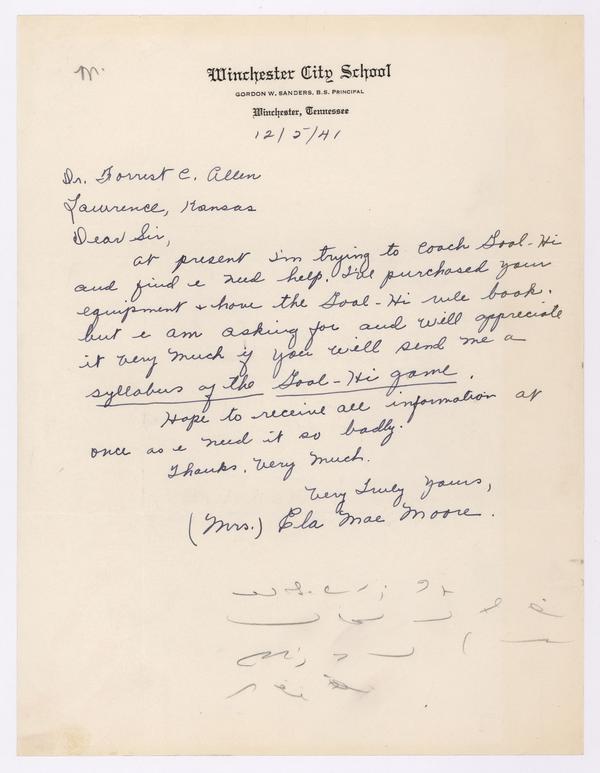 M.
Winchester City School
GORDON W. SANDERS, B.S. PRINCIPAL
Winchester, Tennessee
12/5/41
Dr. Forrest C. Allen
Lawrence, Kansas
Dear Sir,
At present I'm trying to coach Goal-Hi
and find I need help. I've purchased your
equipment & have the Goal-Hi rule book.
but I am asking for and will appreciate
it very much if you will send me a
syllabus of the Goal-Hi game.
Hope to receive all information at
once as I need it so badly.
Thanks, very much.
Very Truly Yours,
(Mrs.) Ela Mae Moore.